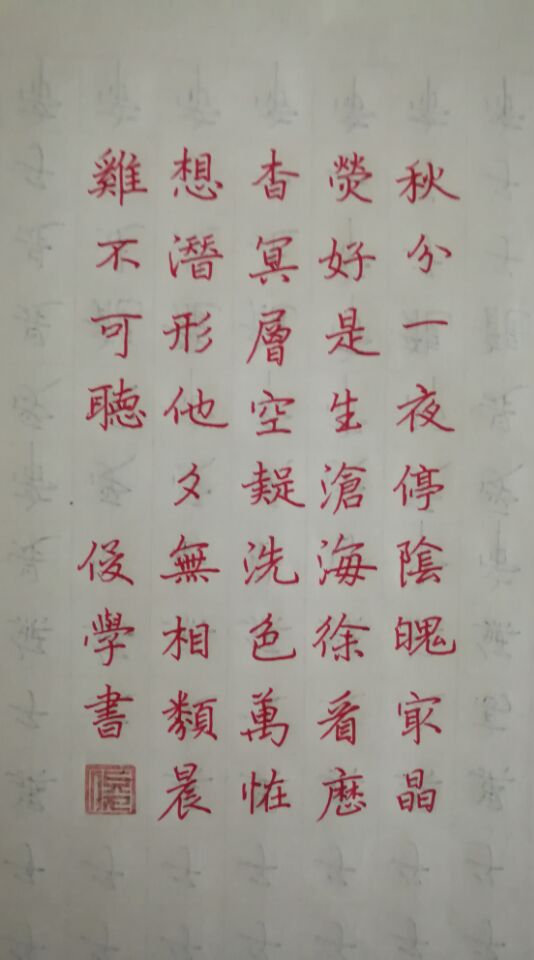 秋分一夜停陰魄冣晶
熒好是生滄海徐看歷
杳冥層空疑洗色萬恠
想潛形他夕無相類晨
雞不可聽 侵學書